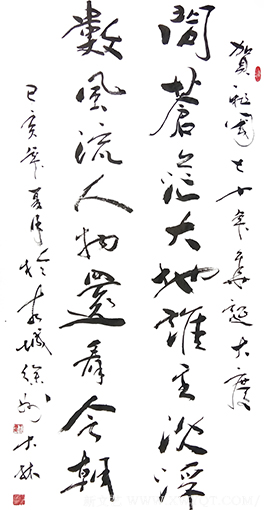 賀祖國七十年華誕大慶
問蒼茫大地誰主沈浮
數風流人物還看今朝
己亥年夏月於城徐州